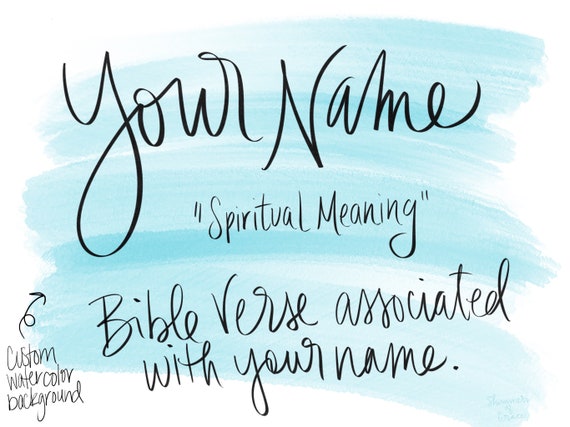 Your Name
"Spiritual Meaning"
Bible Verse associated
with your name.
Custom
watercolor
background